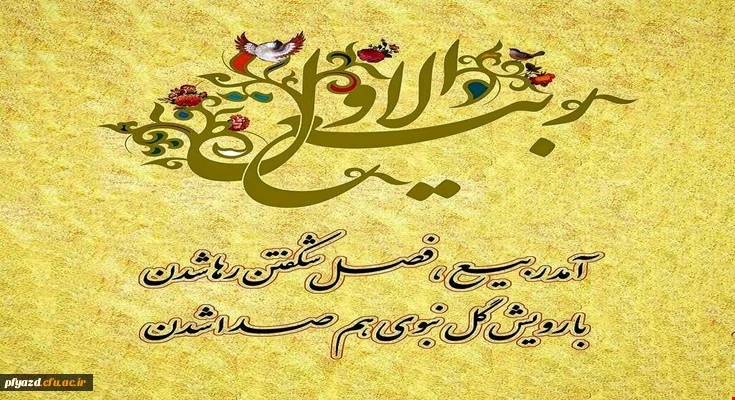 ربیع الاول
آمد ربیع ، فصل شکفتن رها شدن
با رویش گل نبوی هم صدا شدن
pfyazd.cfu.ac.ir